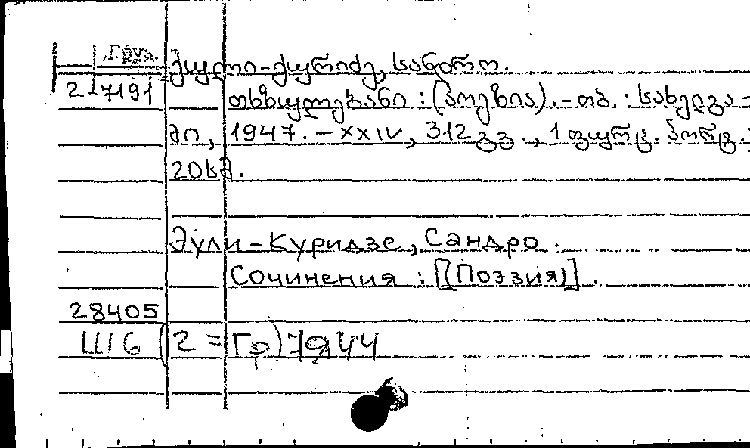 Груз.
ეული-ქურიძე, სანდრო.
217191 თხზულებანი : (პოეზია). - თბ. : სახელგა-
მი, 1947. - XXIV, 312 გვ., 1 ფურც. პორტრ. ;
20სმ.
Эули-Куридзе, Сандро.
Сочинения : [[Поэзия]].
28405
Ш6 (2=Гр) 7944